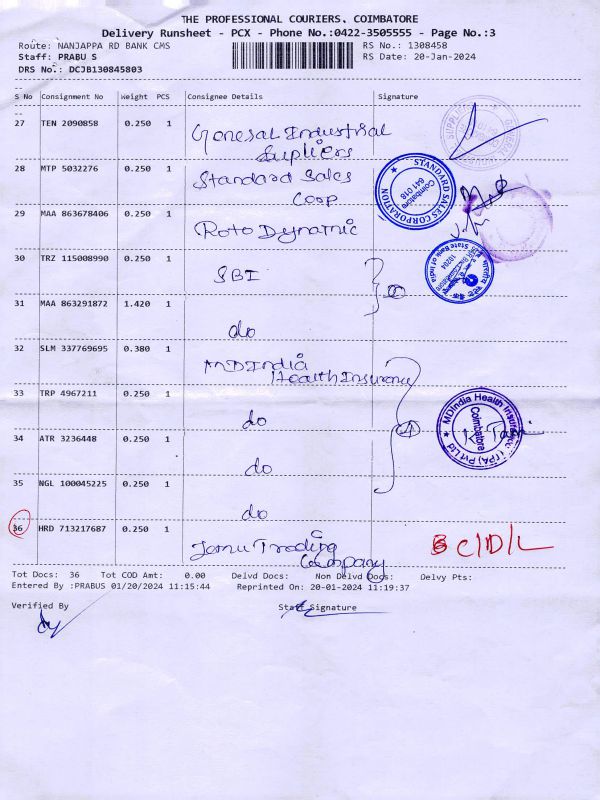 THE PROFESSIONAL COURIERS, COIMBATORE
Delivery Runsheet - PCX - Phone No.:0422-3505555 - Page No.:3
Route: NANJAPPA RD BANK CMS RS No.: 1308458
Staff: PRABU S RS Date: 20-Jan-2024
DRS No.: DCJB130845803
S No Consignment No Weight PCS Consignee Details Signature
27 TEN 2090858 0.250 1 General Industrial
Supliers
28 MTP 5032276 0.250 1 Standard Sales
Coop
STANDARD SALES CORPORATION
Coimbatore
641 018
29 MAA 863678406 0.250 1 Roto Dynamic
30 TRZ 115008990 0.250 1 SBI
State Bank of India
31 MAA 863291872 1.420 1
do
32 SLM 337769695 0.380 1 MDIndia
Health Insurance
33 TRP 4967211 0.250 1
do
MDIndia Health Insurance (TPA) Pvt Ltd
Coimbatore
34 ATR 3236448 0.250 1
do
35 NGL 100045225 0.250 1
do
36 HRD 713217687 0.250 1
Jemu Trading
Company
C/D/L
Tot Docs: 36 Tot COD Amt: 0.00 Delvd Docs: Non Delvd Docs: Delvy Pts:
Entered By :PRABUS 01/20/2024 11:15:44 Reprinted On: 20-01-2024 11:19:37
Verified By Staff Signature